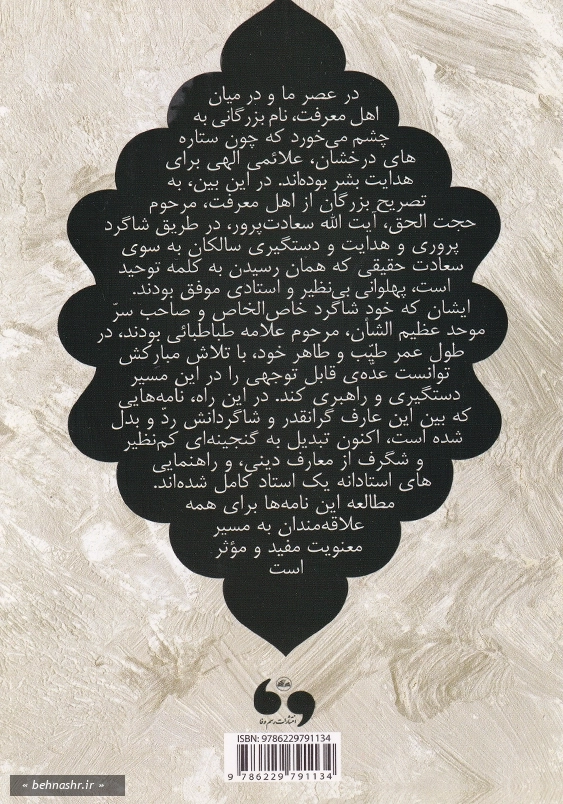 در عصر ما و در میان
اهل معرفت، نام بزرگانی به
چشم می‌خورد که چون ستاره
های درخشان، علائمی الهی برای
هدایت بشر بوده‌اند. در این بین، به
تصریح بزرگان از اهل معرفت، مرحوم
حجت الحق، آیت الله سعادت‌پرور، در طریق شاگرد
پروری و هدایت و دستگیری سالکان به سوی
سعادت حقیقی که همان رسیدن به کلمه توحید
است، پهلوانی بی‌نظیر و استادی موفق بودند.
ایشان که خود شاگرد خاص‌الخاص و صاحب سرّ
موحد عظیم الشأن، مرحوم علّامه طباطبائی بودند، در
طول عمر طیّب و طاهر خود، با تلاش مبارکش
توانست عدّه‌ی قابل توجهی را در این مسیر
دستگیری و راهبری کند. در این راه، نامه‌هایی
که بین این عارف گرانقدر و شاگردانش ردّ و بدل
شده است، اکنون تبدیل به گنجینه‌ای کم‌نظیر
و شگرف از معارف دینی، و راهنمایی
های استادانه یک استاد کامل شده‌اند.
مطالعه این نامه‌ها برای همه
علاقه‌مندان به مسیر
معنویت مفید و مؤثر
است
انتشارات رسم وفا
ISBN: 9786229791134
9 786229 791134
« behnashr.ir »